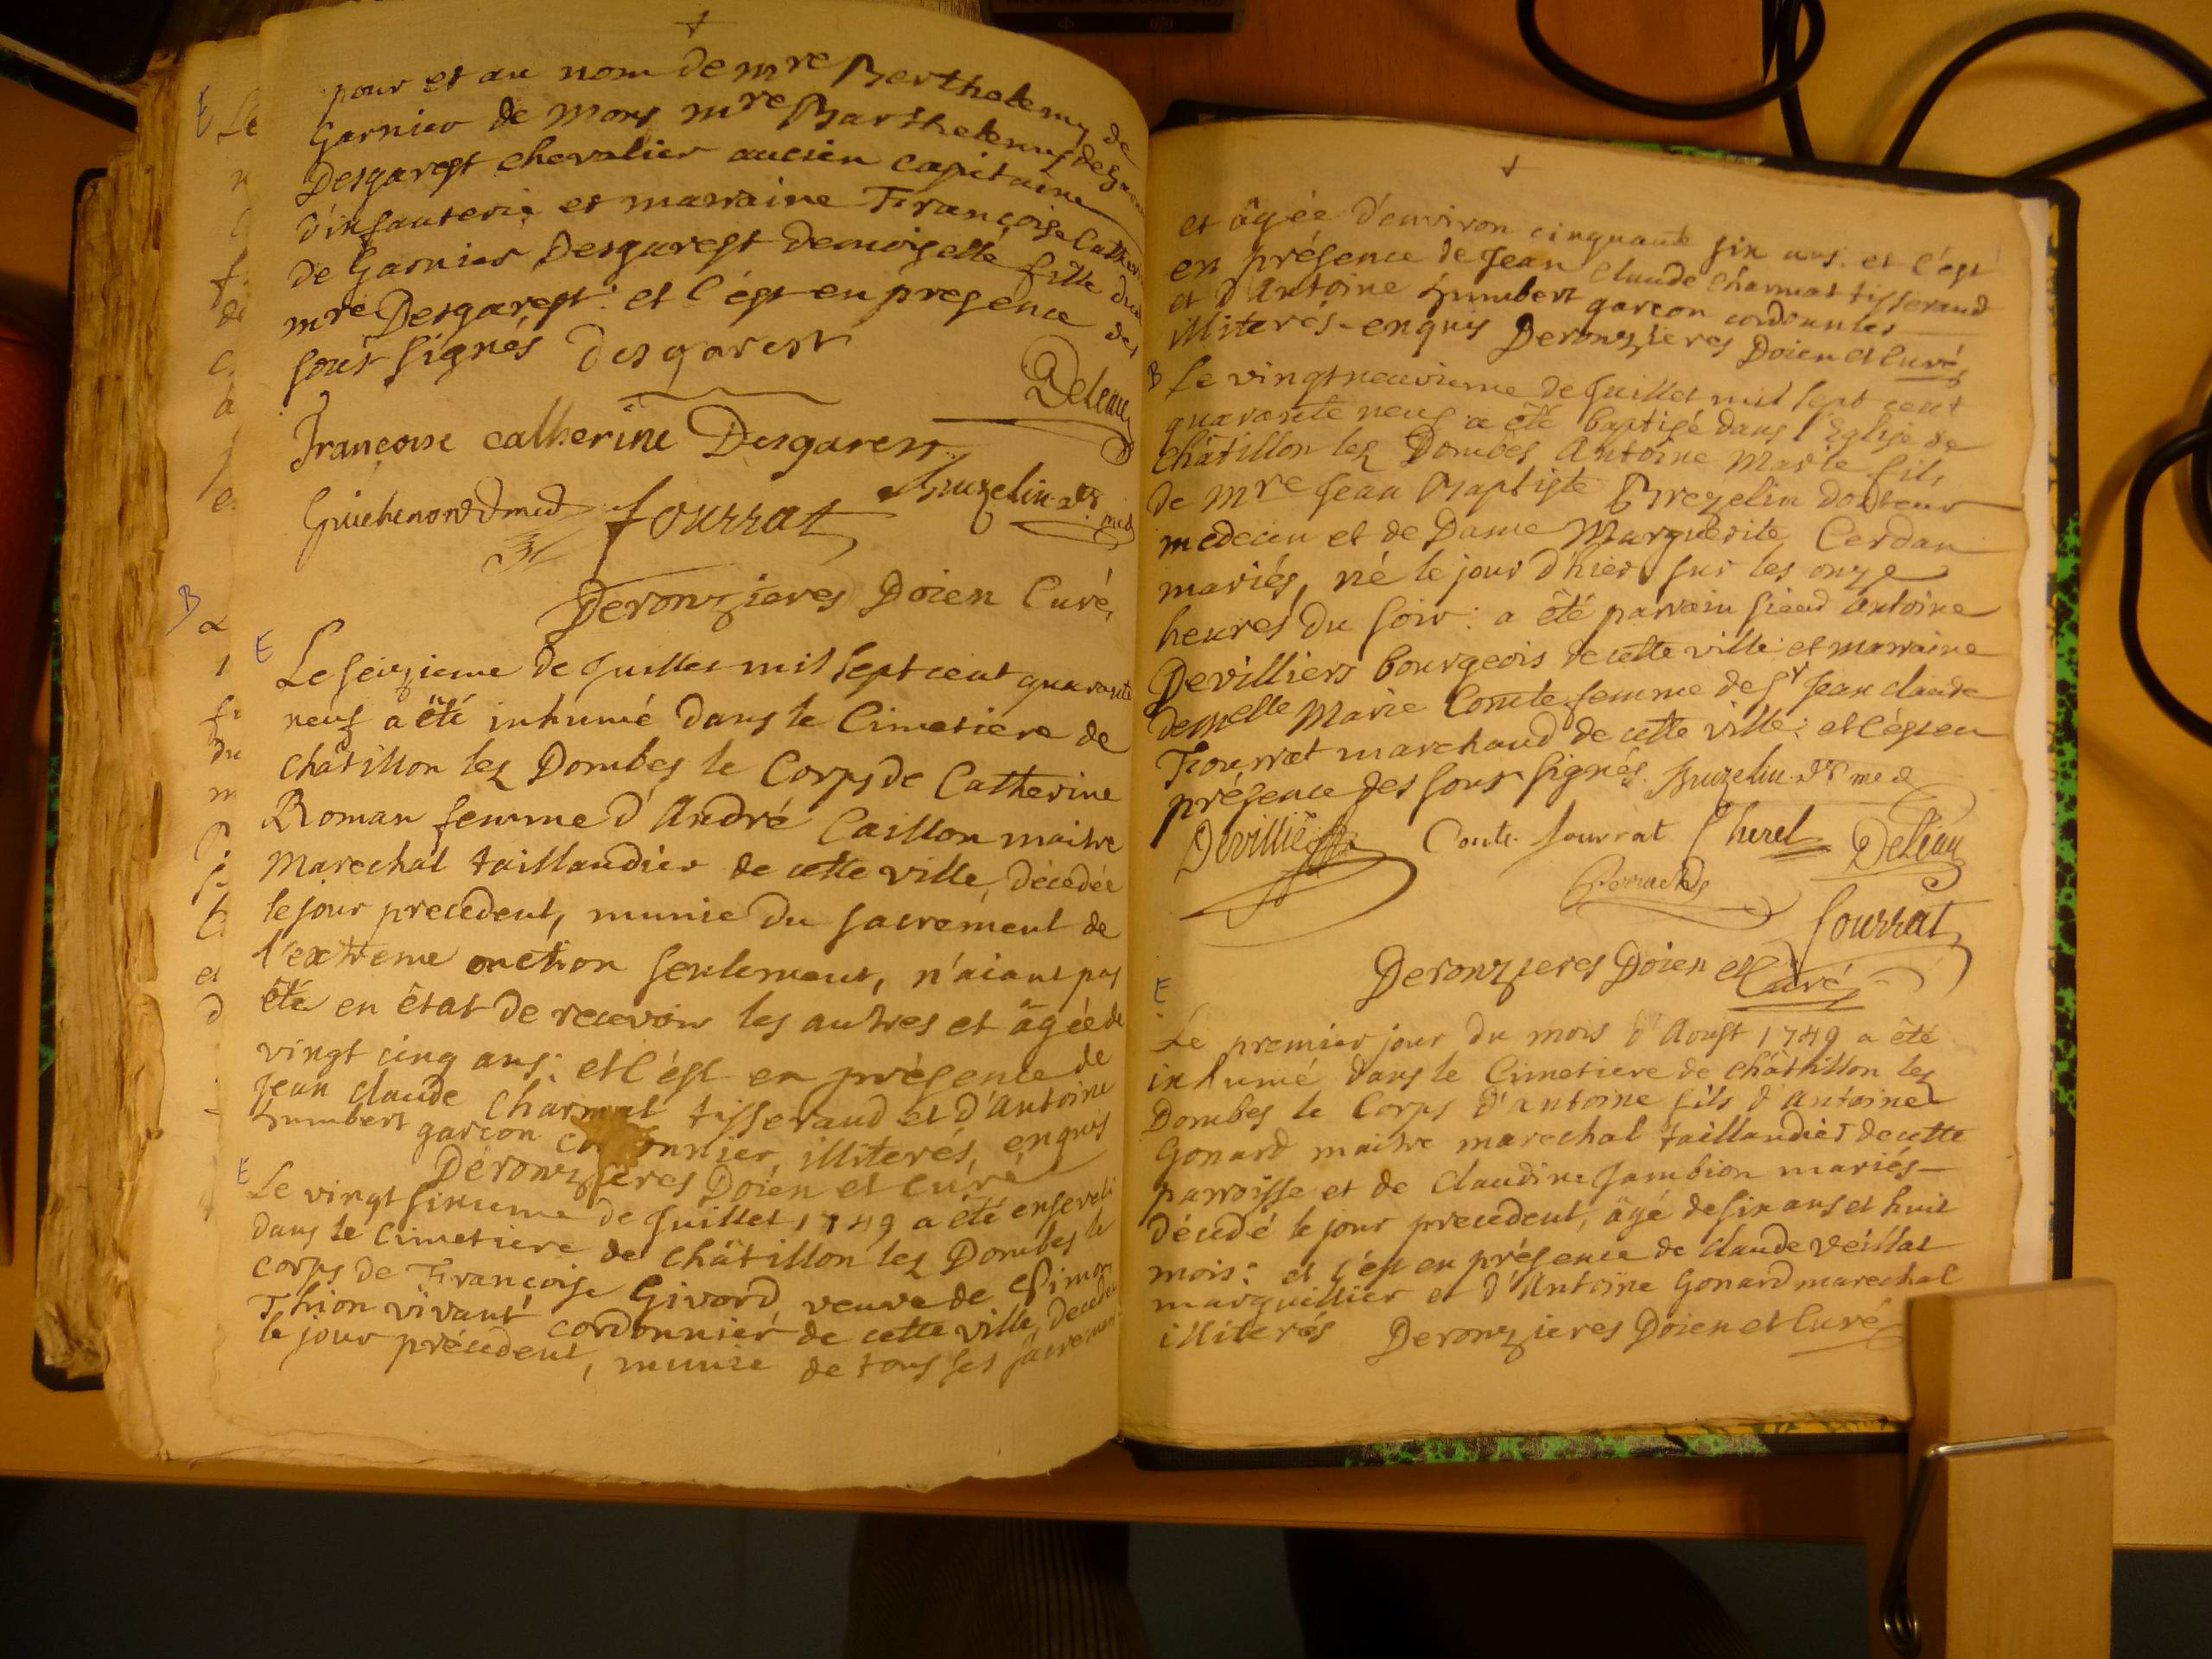 pour et au nom de mre Berthelemy de
Garnier de mons mre Barthelemy de Garnier
Desgarest chevalier ancien capitaine
d'infanterie et marraine Françoise Catherine
de Garnier Desgarest demoiselle fille dud
mre Desgarest: et c'ést en presence des
sous signés desgarest
Deleau
Francoise catherine Desgarest
Guichenon D med fourrat Bruzelin dr med
Deronzieres Doien Curé
E
Le seizieme de juillet mil sept cent quarante
neuf a été inhumé dans le Cimetiere de
châtillon lez Dombes le Corps de Catherine
Roman femme d'André Caillon maitre
Marechal taillandier de cette ville, décédée
le jour precedent, munie du sacrément de
l'extreme onction seulement, n'aiant pas
été en êtat de recevoir les autres et âgée de
vingt cinq ans: et c'ést en présence de
Jean claude Charmat tisserand et d'Antoine
humbert garçon cordonnier, illiterés, enquis
Deronzieres Doien et curé
E
Le vingt sixieme de Juillet 1749 a été enseveli
dans le Cimetiere de châtillon lez Dombes le
corps de Françoise Givord, veuve de Simon
Thion vivant cordonnier de cette ville, decedée
le jour précedent, munie de tous ses sacremens
et âgée d'environ cinquante six ans. et c'est
en présence de Jean Claude Charmat tisserand
et d'Antoine humbert garçon cordonnier
illiterés enquis Deronzieres Doien et Curé
B
Le vingt neuvieme de juillet mil sept cent
quarante neuf a été baptisé dans l'Eglise de
châtillon lez Dombes Antoine Marie fils
de mre Jean Baptiste Brezelin docteur
médecin et de Dame Marguerite Cerdan
mariés, né le jour d'hier sur les onze
heures du soir: a été parrain sieur Antoine
Devilliers bourgeois de cette ville et marraine
demoelle Marie Comte femme de sr Jean claude
Fourrat marchand de cette ville: et c'ést en
présence des sous signés. Bruzelin dr med
Devilliers Conte fourrat Cherel Deleau
fourrat
Deronzieres Doien et Curé
E
Le premier jour du mois d'Aoust 1749 a été
inhumé dans le Cimetiere de châtillon lez
Dombes le Corps d'antoine fils d'Antoine
Gonard maitre marechal taillandier de cette
parroisse et de Claudine Jambion mariés
décédé le jour precedent, âgé de six ans et huit
mois: et c'ést en présence de claude veillat
marguillier et d'Antoine Gonard marechal
illiterés Deronzieres Doien et Curé